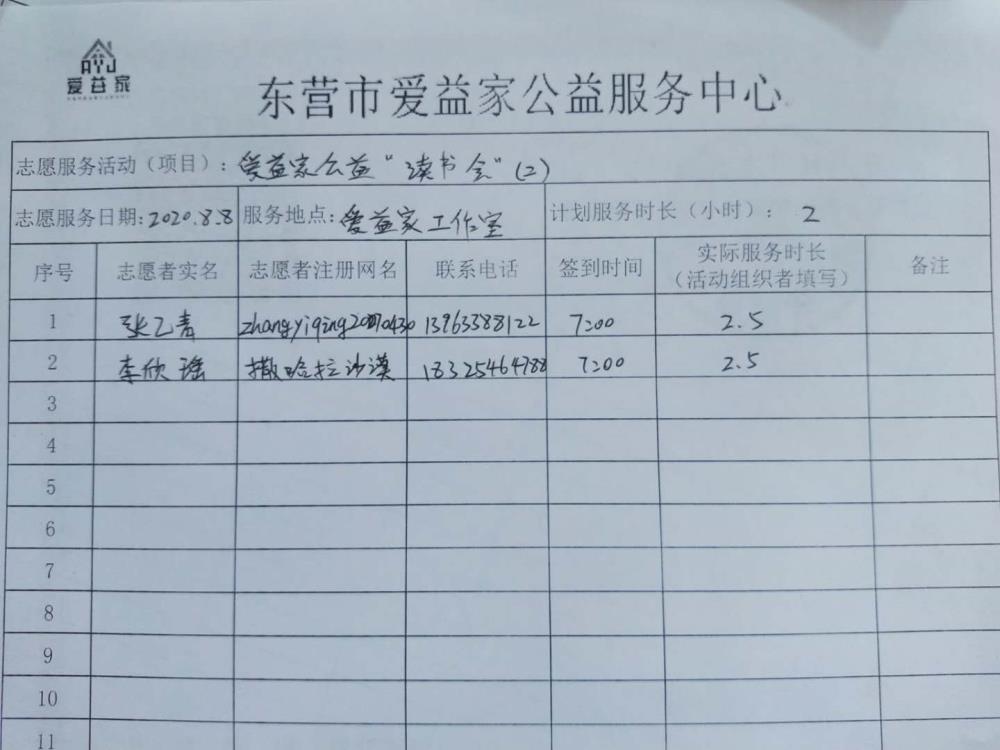 爱益家
东营市爱益家公益服务中心
志愿服务活动（项目）：爱益家公益“读书会”(2)
志愿服务日期:2020.8.8 服务地点:爱益家工作室 计划服务时长（小时）： 2
序号 志愿者实名 志愿者注册网名 联系电话 签到时间 实际服务时长 备注
（活动组织者填写）
1 张乙青 13963388122 7:00 2.5
2 李欣瑶 撒哈拉沙漠 18325464788 7:00 2.5
3
4
5
6
7
8
9
10
11